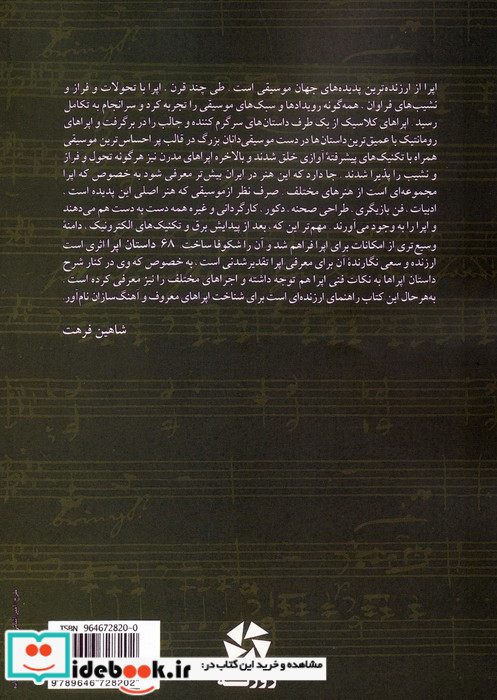 اپرا از ارزنده‌ترین پدیده‌های جهان موسیقی است . طی چند قرن ، اپرا با تحولات و فراز و
نشیب‌های فراوان ، همه‌گونه رویدادها و سبک‌های موسیقی را تجربه کرد و سرانجام به تکامل
رسید . اپراهای کلاسیک از یک طرف داستان‌های سرگرم کننده و جالب را در برگرفت و اپراهای
رومانتیک با عمیق‌ترین داستان‌ها در دست موسیقی‌دانان بزرگ در قالب پر احساس‌ترین موسیقی
همراه با تکنیک‌های پیشرفتهٔ آوازی خلق شدند و بالاخره اپراهای مدرن نیز هرگونه تحول و فراز
و نشیب را پذیرا شدند . جا دارد که این هنر در ایران بیش‌تر معرفی شود به خصوص که اپرا
مجموعه‌ای است از هنرهای مختلف . صرف نظر از موسیقی که هنر اصلی این پدیده است ،
ادبیات ، فن بازیگری ، طراحی صحنه ، دکور ، کارگردانی و غیره همه دست به دست هم می‌دهند
و اپرا را به وجود می‌آورند . مهم‌تر این که ، بعد از پیدایش برق و تکنیک‌های الکترونیک ، دامنهٔ
وسیع‌تری از امکانات برای اپرا فراهم شد و آن را شکوفا ساخت . ۶۸ داستان اپرا اثری است
ارزنده و سعی نگارندهٔ آن برای معرفی اپرا تقدیرشدنی است . به خصوص که وی در کنار شرح
داستان اپراها به نکات فنی اپرا هم توجه داشته و اجراهای مختلف را نیز معرفی کرده است .
به‌هرحال این کتاب راهنمای ارزنده‌ای است برای شناخت اپراهای معروف و آهنگ‌سازان نام‌آور
شاهین فرهت
ISBN 964672820-0
9 789646 728202
idebook.ir
مشاهده و خرید این کتاب در: